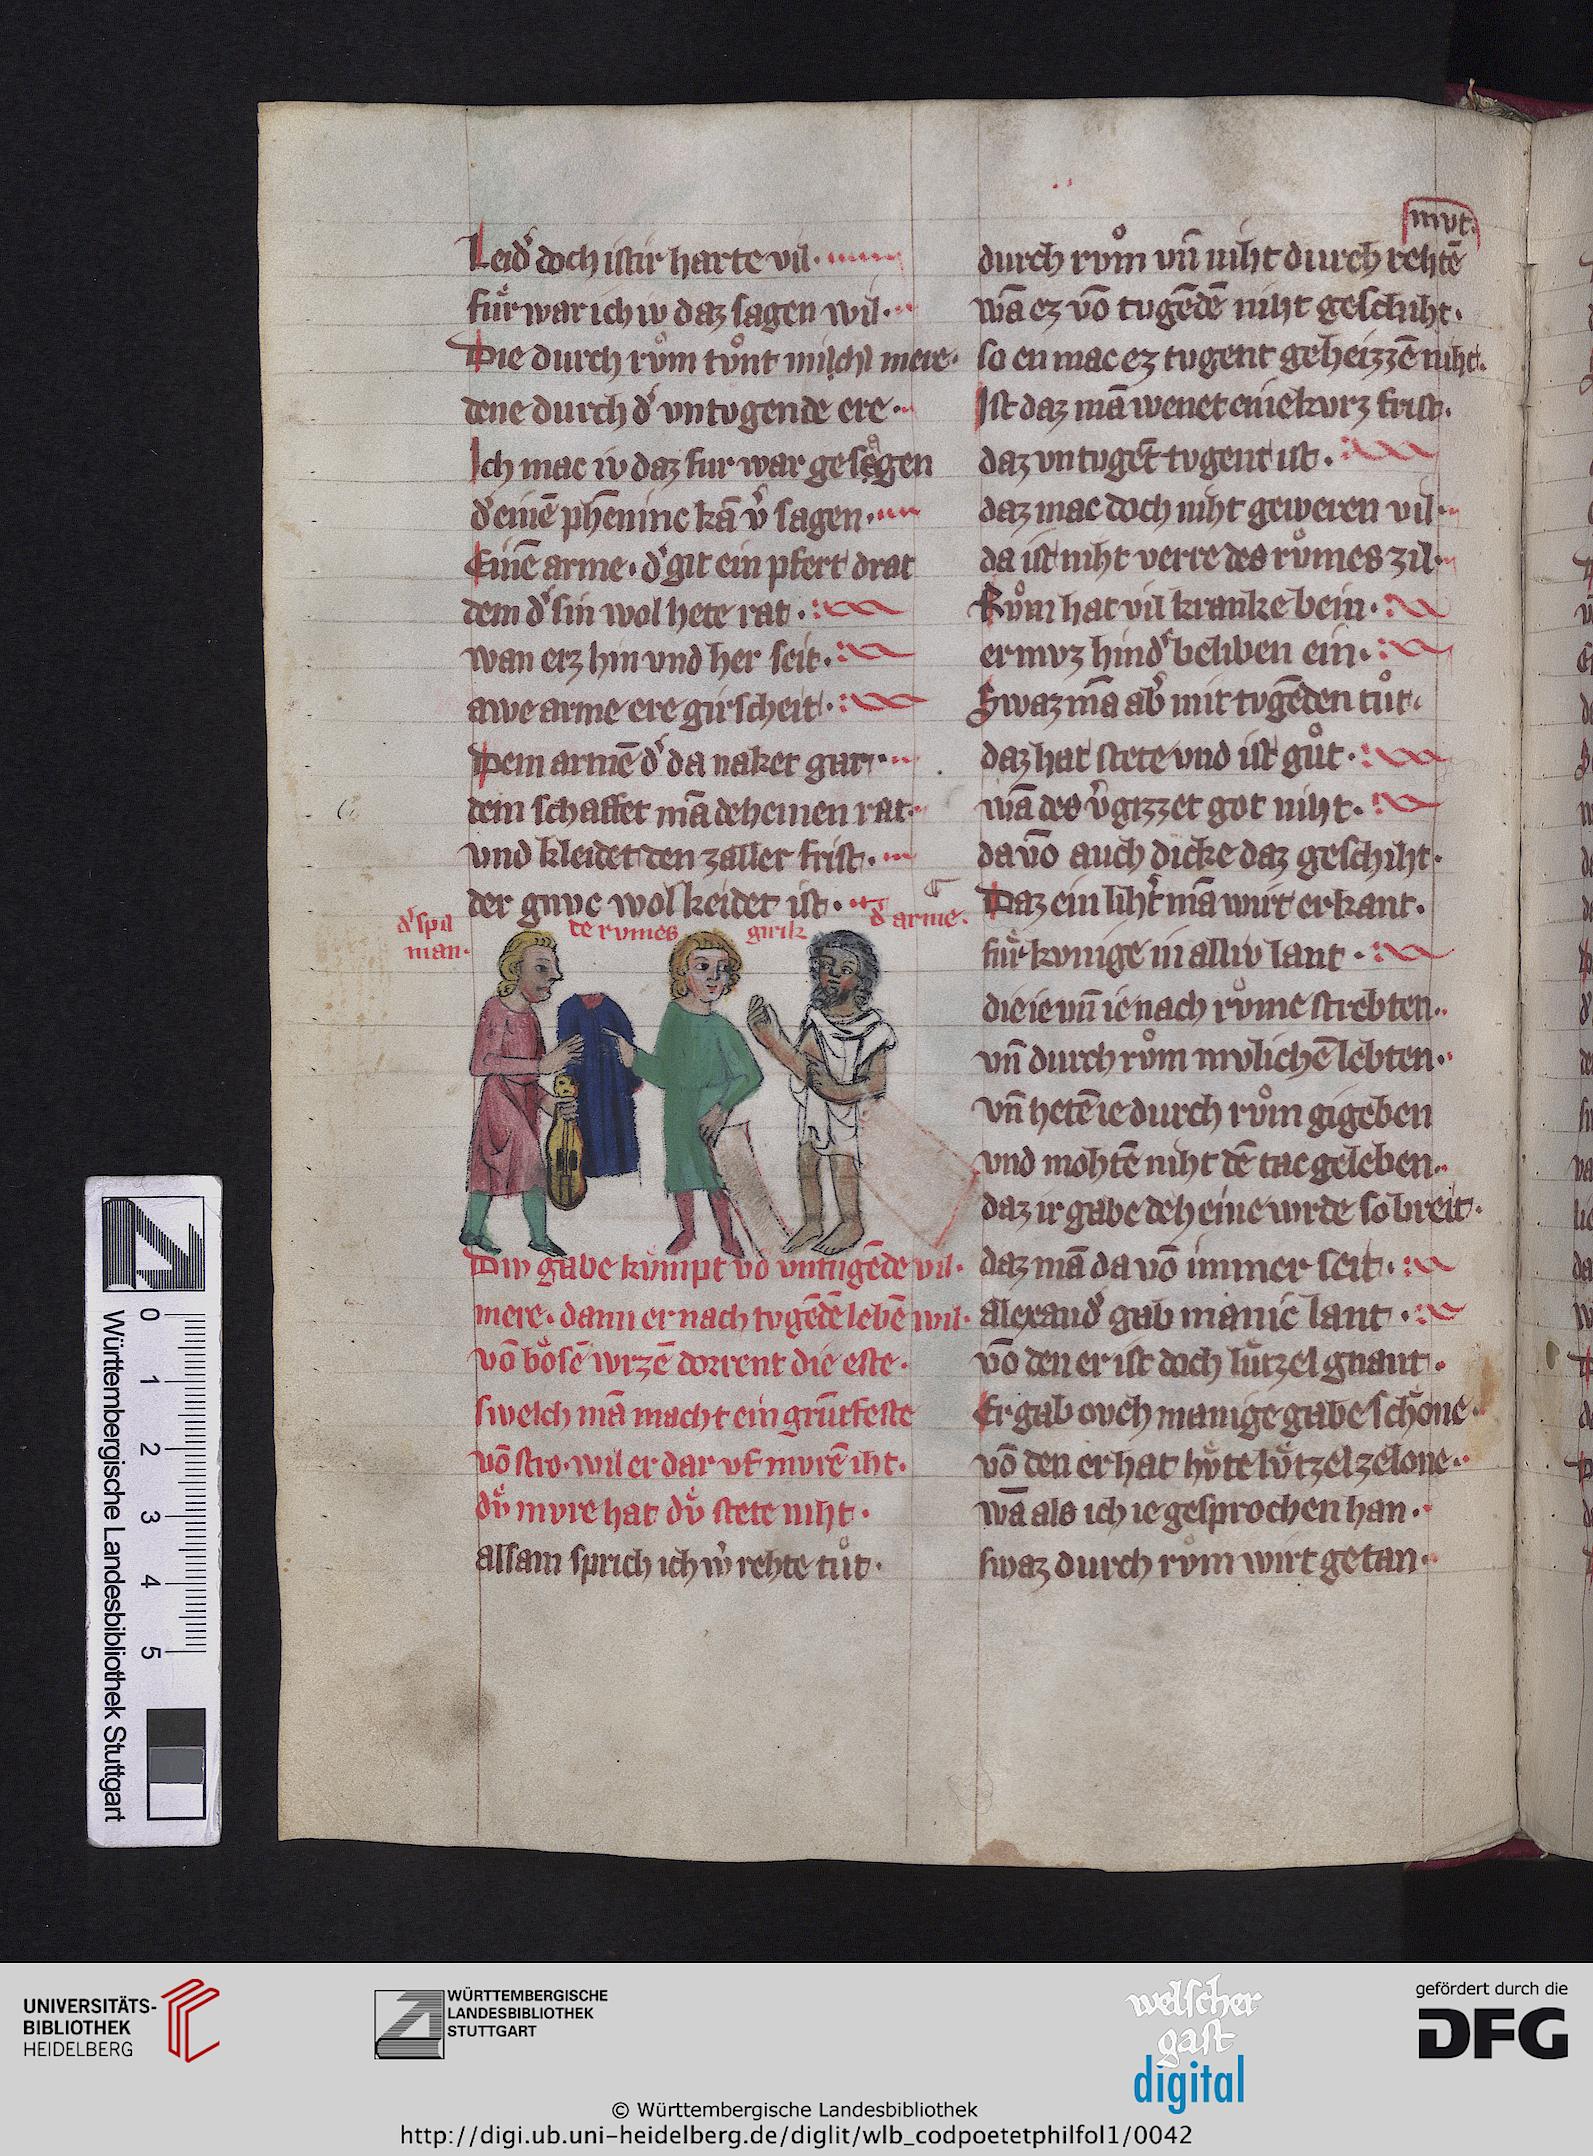 Leid᷑ doch ist ir harte vil·
fuͤr war ich iv daz sagen wil·
Die durch rvͦm tvͦnt milchl mere·
dene durch d᷑ vntvgende ere·
Ich mac iv daz fur war gesagen
d᷑ einē phēninc kā v᷑ sagen·
Einē arme· d᷑ git ein pfert drat
dem d᷑ sin wol hete rat·
wan erz hin vnd her seit·
awe arme ere girscheit·
Dem armē d᷑ da naket gat·
dem schaffet mā deheinen rat·
vnd kleidet den zaller frist·
der gnvc wol keidet ist·
d᷑ spil
man·
de rvmes girik
d᷑ arme·
Div gabe kumpt vō vntugēde vil·
mere· dann er nach tvgēdē lebē wil·
vō boͤsē wrzē dorrent die este·
swelch mā macht ein grūtfeste
vō stro· wil er dar vf mvrē iht·
dvͤ mvre hat dvͤ stete niht·
alsam sprich ich w᷑ rehte tuͦt·
mvt·
durch rvͦm vn̄ niht durch rehtē
wā ez vō tvgēdē niht geschiht·
so en mac ez tvgent geheizzē niht·
Ist daz mā wenet einie kvrz frist·
daz vntugēt tvgent ist·
daz mac doch niht geweren vil·
da ist niht verre des rvͦmes zil·
Rvͦm hat vil kranke bein·
er mvz hind᷑ beliben ein·
Swaz mā ab᷑ mit tvgēden tuͦt·
daz hat stete vnd ist guͦt·
wā des v᷑gizzet got niht·
da vō auch dicke daz geschiht·
Daz ein liht᷑ mā wirt erkant·
fuͤr kvnige in alliv lant·
die ie vn̄ ie nach rvͦme strebten·
vn̄ durch rvͦm mvlichē lebten·
vn̄ hetē ie durch rvͦm gigeben
vnd mohtē niht dē tac geleben·
daz ir gabe deheine wrde so breit·
daz mā da vō immer seit·
alexand᷑ gab manic lant·
vō den er ist doch luͤtzel gnant·
Er gab ovch manige gabe schone·
vō den er hat hvͤte lvͤtzel zelone·
wā als ich ie gesprochen han·
swaz durch rvͦm wirt getan·
Württembergische Landesbibliothek Stuttgart
0
1
2
3
4
5
UNIVERSITÄTS-
BIBLIOTHEK
HEIDELBERG
WÜRTTEMBERGISCHE
LANDESBIBLIOTHEK
STUTTGART
welscher
gast
digital
gefördert durch die
DFG
© Württembergische Landesbibliothek
http://digi.ub.uni-heidelberg.de/diglit/wlb_codpoetetphilfol1/0042